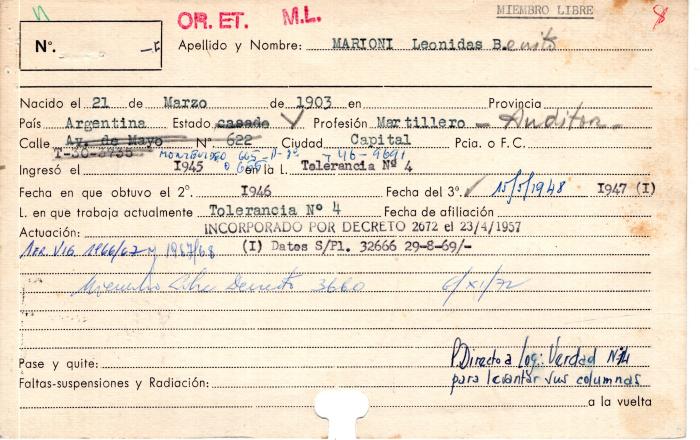 OR. ET. M.L. MIEMBRO LIBRE 8
N°.
Apellido y Nombre: MARIONI Leonidas B.enito
Nacido el 21 de Marzo de 1903 en Provincia
País Argentina Estado casado Profesión Martillero - Auditor -
Calle Av. de Mayo N° 622 Ciudad Capital Pcia. o F.C.
MONTEVIDEO 665
Ingresó el I945 en la L. Tolerancia Nº 4
Fecha en que obtuvo el 2°. I946 Fecha del 3°. 15/5/1948 I947 (I)
L. en que trabaja actualmente Tolerancia Nº 4 Fecha de afiliación
Actuación: INCORPORADO POR DECRETO 2672 el 23/4/1957
1er. VIG 1966/67 y 1967/68 (I) Datos S/Pl. 32666 29-8-69/-
Miembro Libre Decreto 3660 6/XI/72
Pase y quite: P. Directo a Log∴ Verdad Nº14
Faltas-suspensiones y Radiación: para levantar sus columnas
a la vuelta